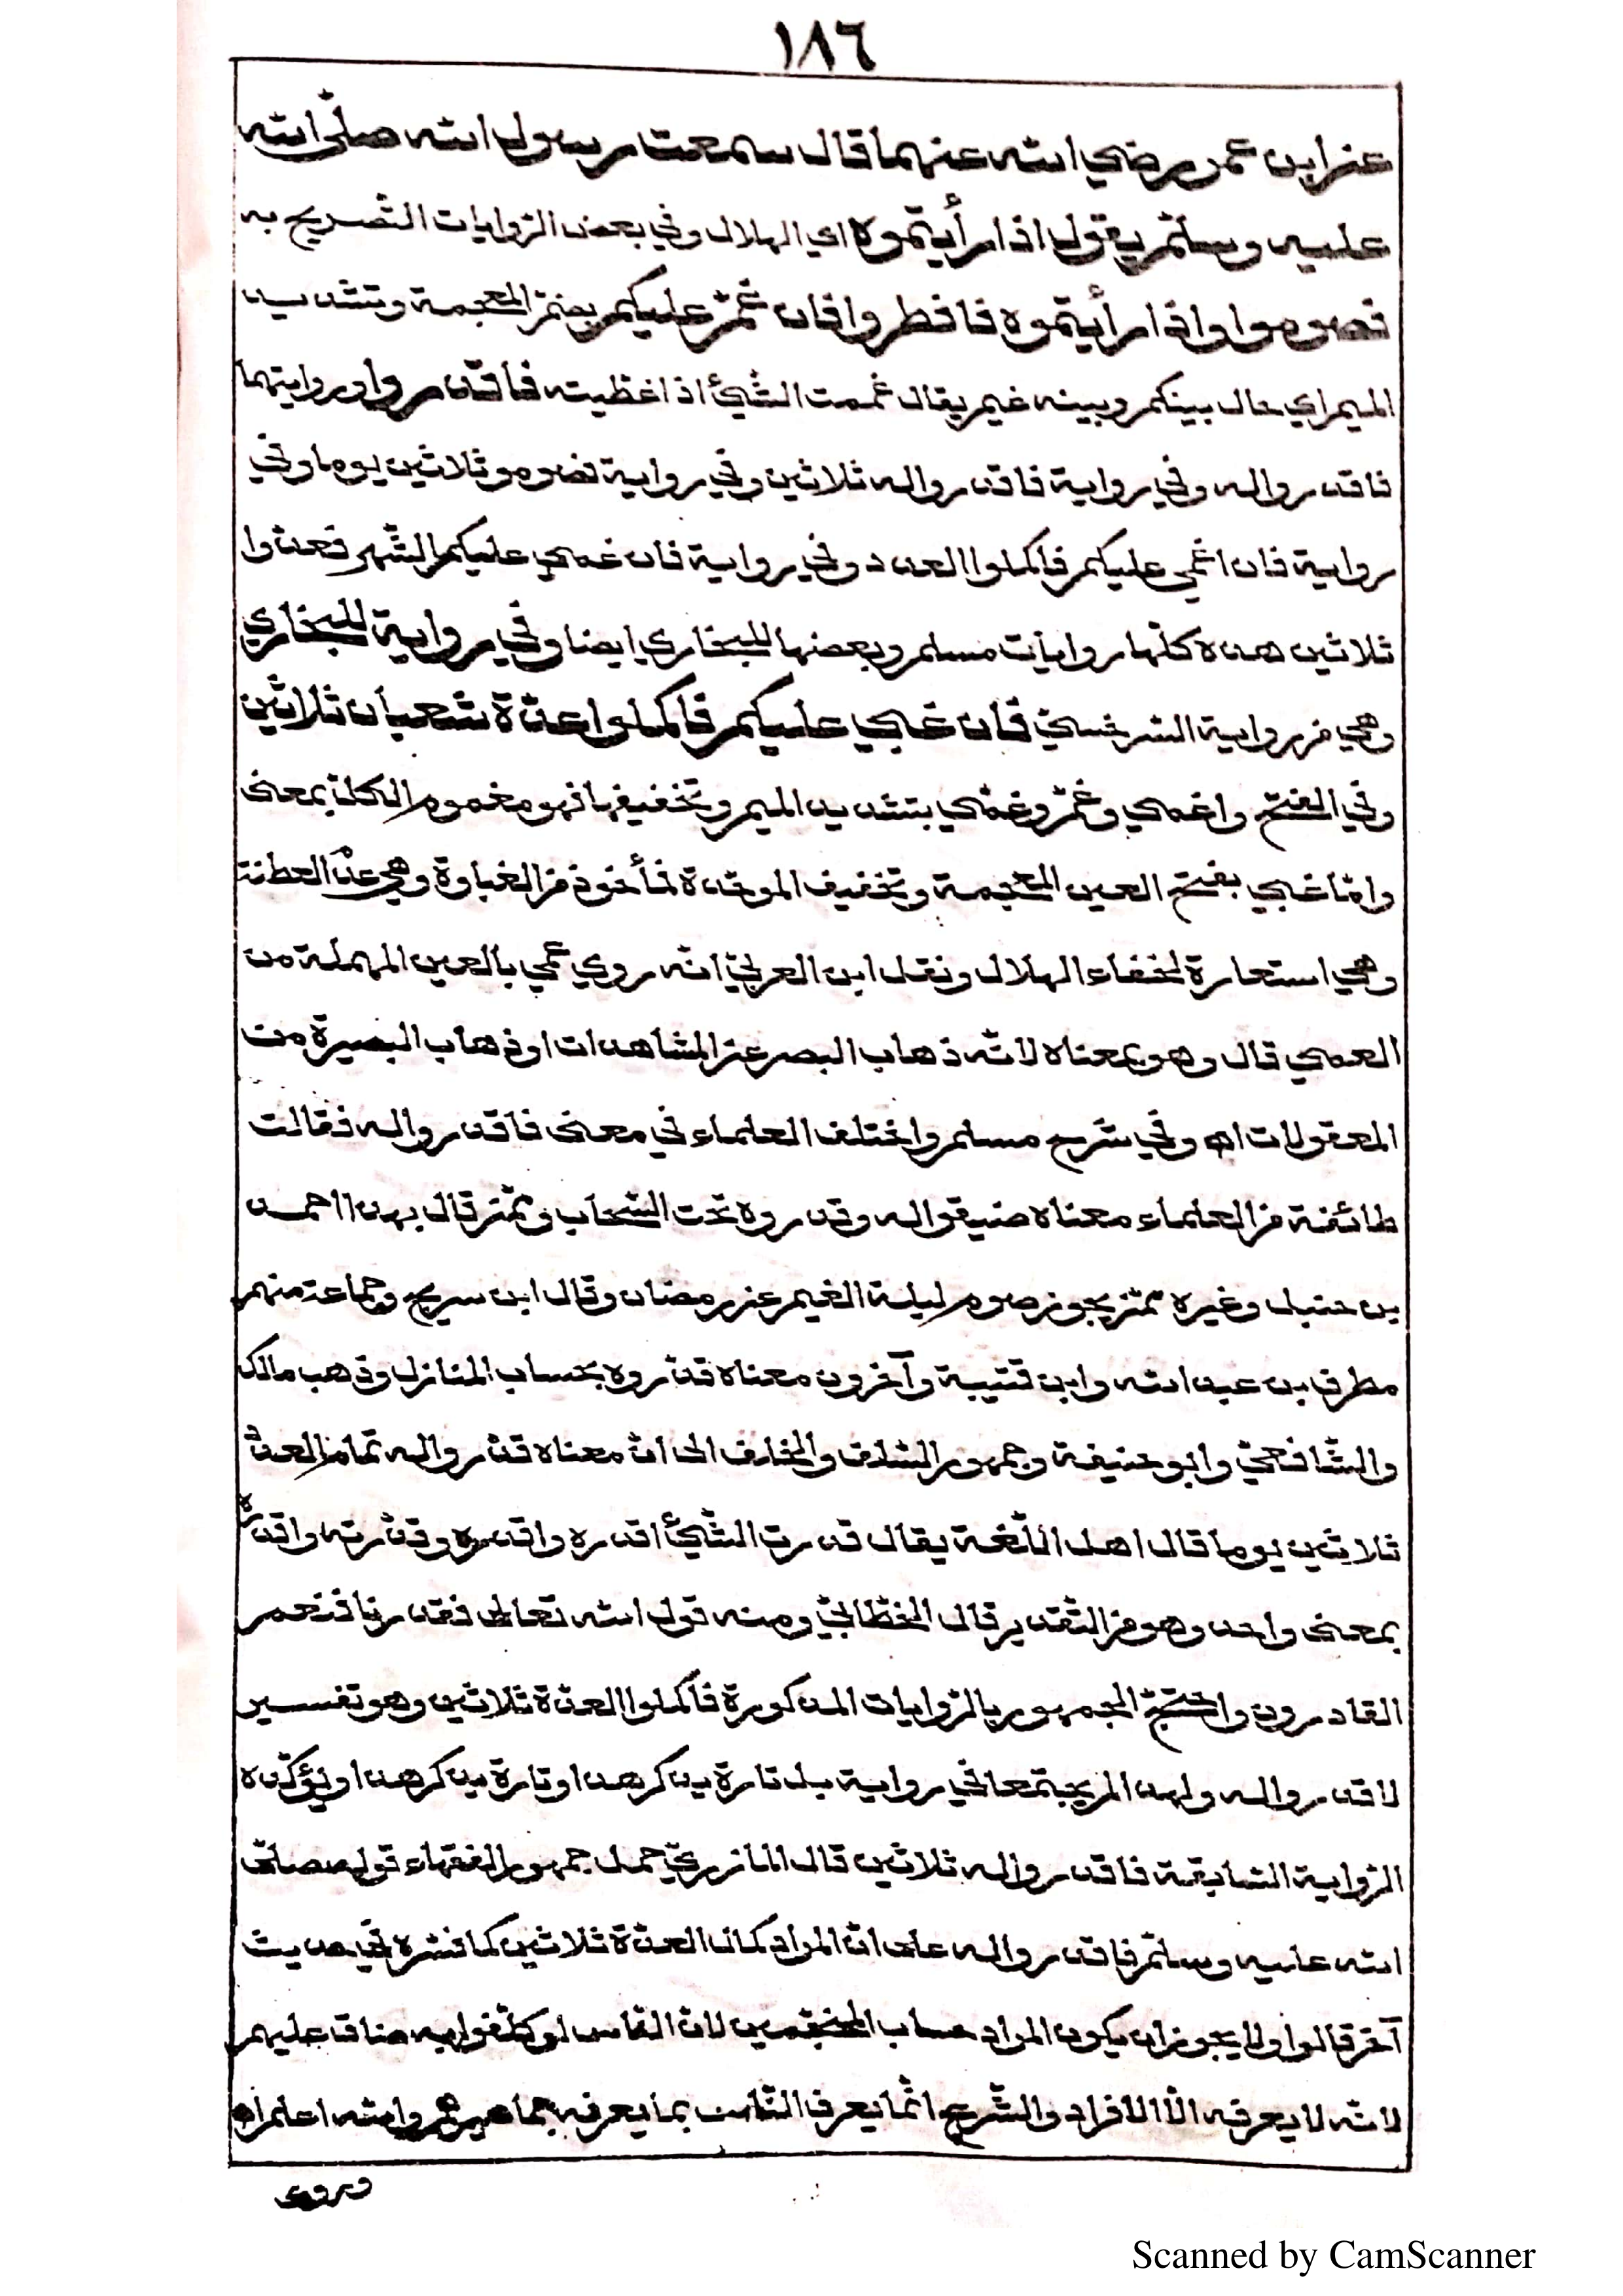 ١٨٦
عن ابن عمر رضي الله عنهما قال سمعت رسول الله صلى الله
عليه وسلم يقول اذا رأيتموه اي الهلال وفي بعض الروايات التصريح به
فصوموا واذا رأيتموه فافطروا فان غمّ عليكم بضم المعجمة وتشديد
الميم اي حال بينكم وبينه غيم يقال غممت الشئ اذا غطيته فاقدروا وروايتهما
فاقدروا له وفي رواية فاقدروا له ثلاثين وفي رواية فصوموا ثلاثين يوما وفي
رواية فان اغمي عليكم فاكملوا العدد وفي رواية فان غمي عليكم الشهر فعدوا
ثلاثين هذه كلها روايات مسلم وبعضها للبخاري ايضا وفي رواية للبخاري
وهي من رواية السرخسي فان غبي عليكم فاكملوا عدّة شعبان ثلاثين
وفي الفتح واغمي وغمّ وغمّي بتشديد الميم وتخفيفها فهو مغموم الكل بمعنى
وامّا غبي بفتح الغين المعجمة وتخفيف الموحّدة فمأخوذ من الغباوة وهي عدم الفطنة
وهي استعارة لخفاء الهلال ونقل ابن العربيّ انه روي عمي بالعين المهملة من
العمي قال وهو بمعناه لانّه ذهاب البصر عن المشاهدات او ذهاب البصيرة من
المعقولات اه وفي شرح مسلم واختلف العلماء في معنى فاقدروا له فقالت
طائفة من العلماء معناه ضيقوا له وقدروه تحت السّحاب وممّن قال بهذا احمد
بن حنبل وغيره ممّن يجوز صوم ليلة الغيم عن رمضان وقال ابن سريج وجماعة منهم
مطرف بن عبد الله وابن قتيبة وآخرون معناه قدّروه بحساب المنازل وذهب مالك
والشّافعيّ وابو حنيفة وجمهور السّلف والخلف الى انّ معناه قدّروا له تمام العدّة
ثلاثين يوما قال اهل اللّغة يقال قدرت الشّئ اقدره واقدره وقدّرته واقدرته
بمعنى واحد وهو من التّقدير قال الخطّابيّ ومنه قول الله تعالى فقدرنا فنعم
القادرون واحتجّ الجمهور بالرّوايات المذكورة فاكملوا العدّة ثلاثين وهو تفسير
لاقدروا له ولهذا لم يجتمعا في رواية بل تارة يذكر هذا وتارة يذكر هذا ويؤكّده
الرّواية السّابقة فاقدروا له ثلاثين قال المازريّ حمل جمهور الفقهاء قوله صلّى
الله عليه وسلّم فاقدروا له على انّ المراد كمال العدّة ثلاثين كما فسّره في حديث
آخر قالوا ولا يجوز ان يكون المراد حساب المنجّمين لانّ النّاس لو كلّفوا به ضاق عليهم
لانّه لا يعرفه الّا الافراد والشّرع انّما يعرف النّاس بما يعرفه جماهيرهم والله اعلم اه
وروى
Scanned by CamScanner